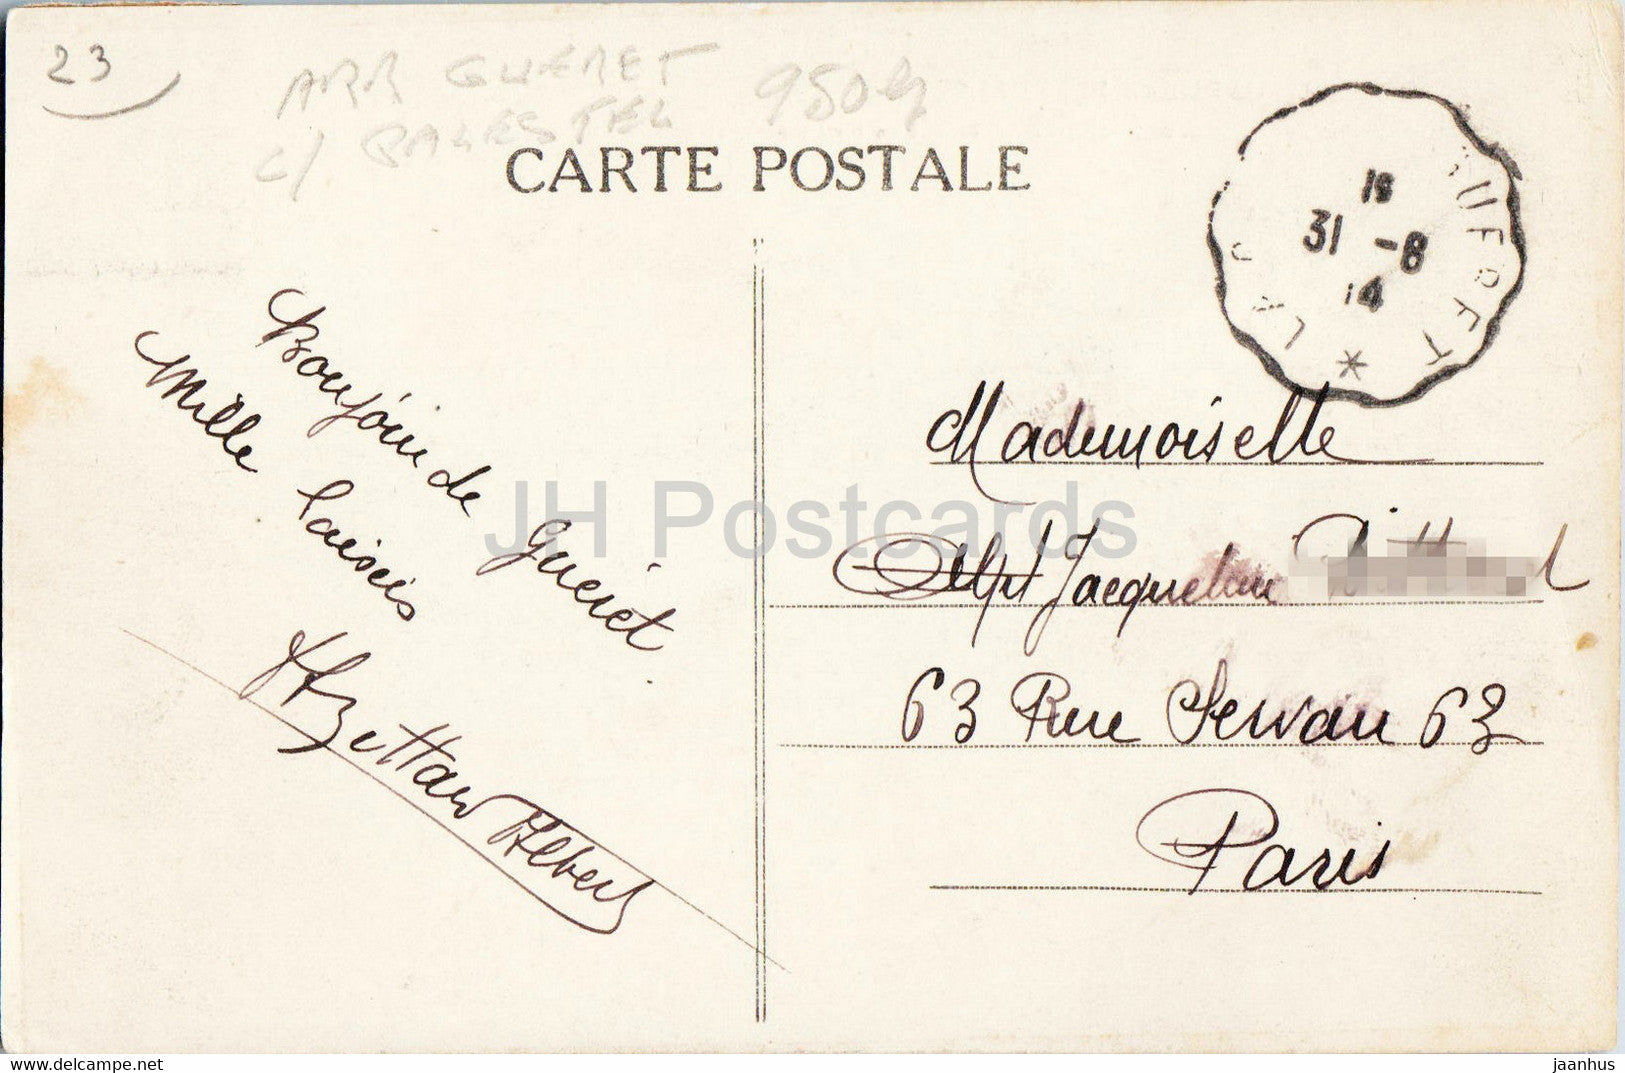 23
ARR GUERET 950h
c/ PALESTEL
CARTE POSTALE
18
31 -8
14
LA
*
Bonjour de Guéret
Mille baisers
Albert
Mademoiselle
Jacqueline
63 Rue Servan 63
Paris
JH Postcards
delcampe.net
jaanhus